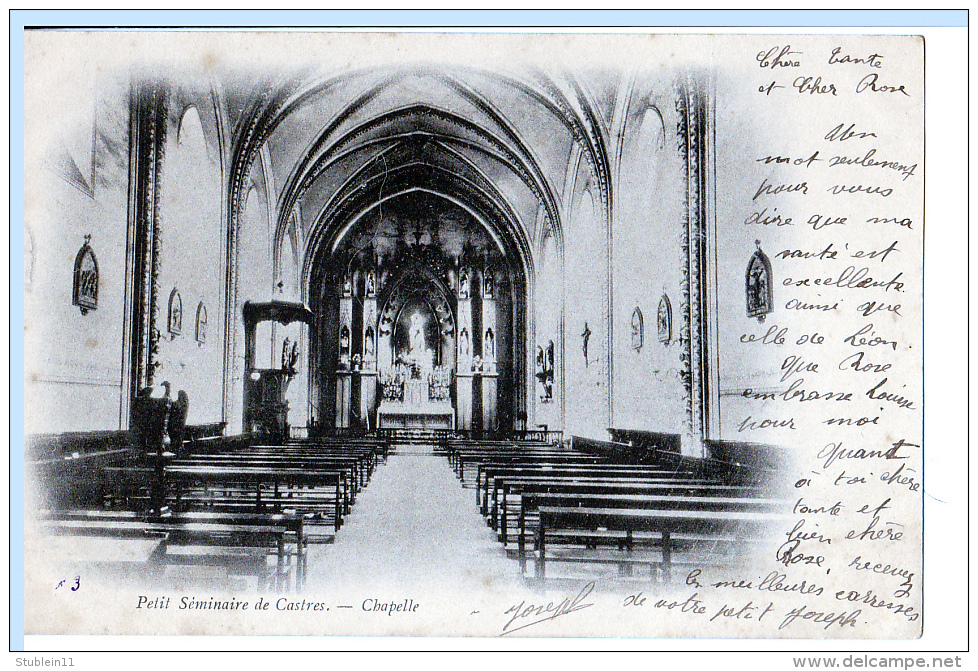 Chère Tante
et Cher Rose
Un
mot seulement
pour vous
dire que ma
santé est
excellente
ainsi que
celle de Léon.
Que Rose
embrasse Louise
pour moi
Quant
à toi chère
tante et
bien chère
Rose, recevez
les meilleures caresses
de votre petit Joseph.
Joseph
F 3
Petit Séminaire de Castres. — Chapelle
Stublein11
http://www.delcampe.net